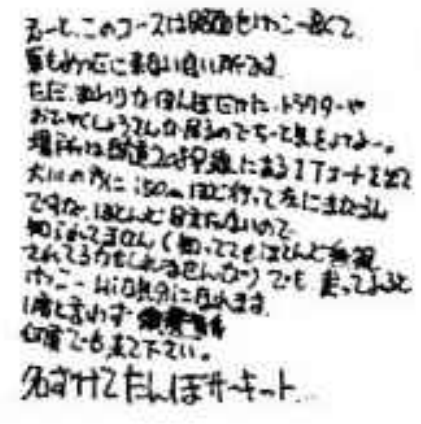 えーと、このコースは路面もけっこー良くて
車もめったに来ない良い所です
ただ、まわりがたんぼだから、トラクターや
おひゃくしょうさんが居るのでちゃーと気をつけよー。
場所は国道 号線にある を
大川の方に150m ほど行って左にまがるん
ですが、ほとんど目立たないので
知られてません(知っててもほとんど無視
されてるかもしれませんが)でも 走ってみると
けっこー Hiな気分になれます
1度と言わず
何度でも来て下さい。
名ずけてたんぼサーキット...